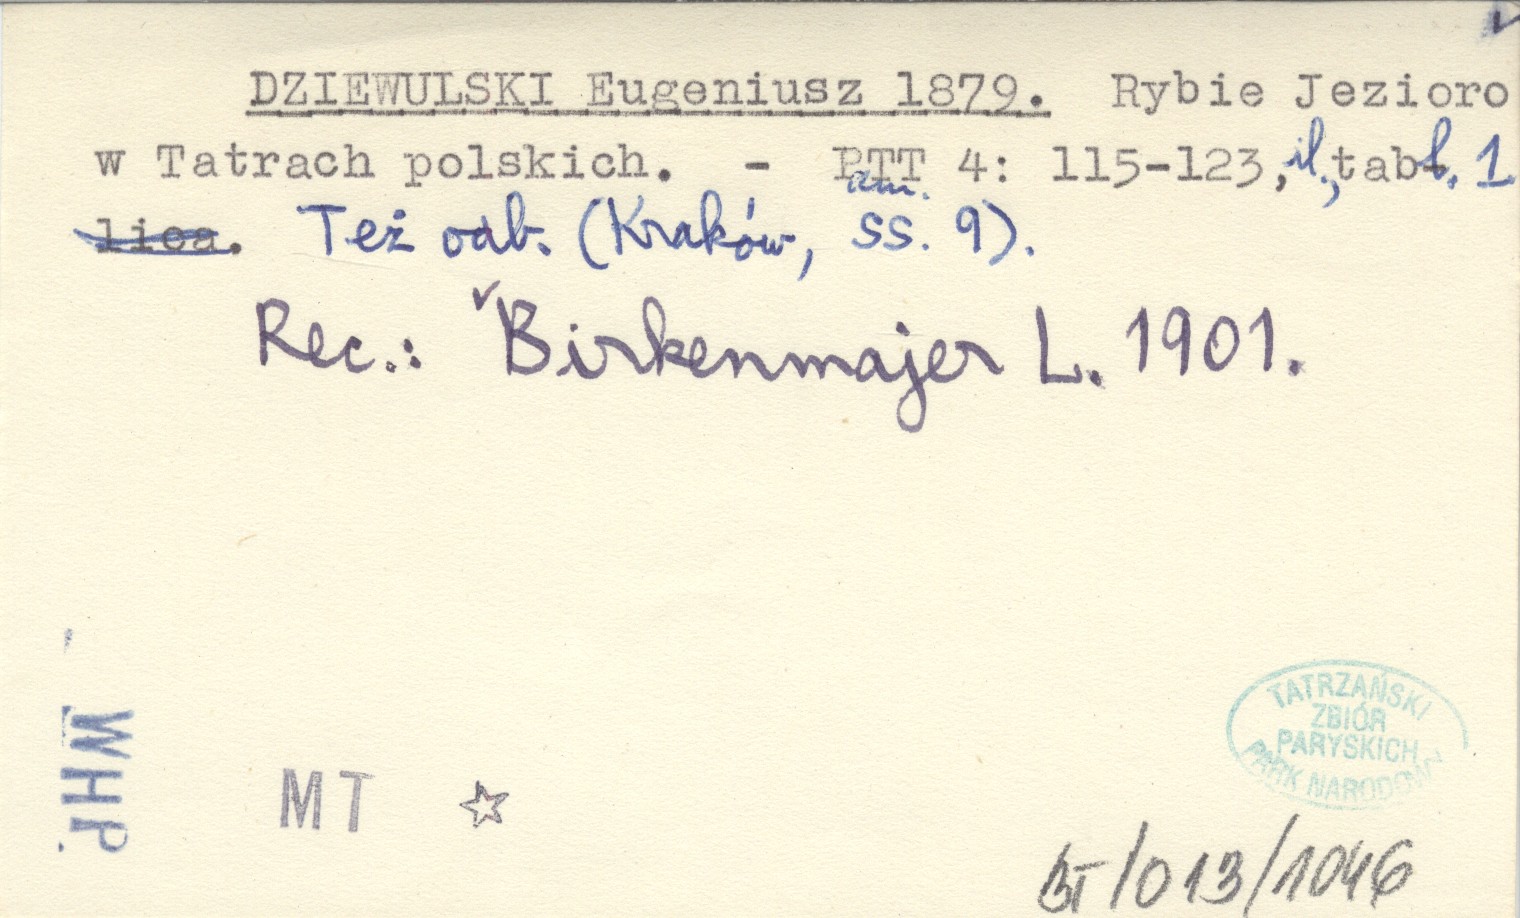 DZIEWULSKI Eugeniusz 1879. Rybie Jezioro
w Tatrach polskich. - PTT 4: 115-123, il., tabl. 1
am.
lica. Też odb. (Kraków, ss. 9).
Rec.: Birkenmajer L. 1901.
WHP.
MT
TATRZAŃSKI
ZBIÓR
PARYSKICH
PARK NARODOWY
BT/013/1046